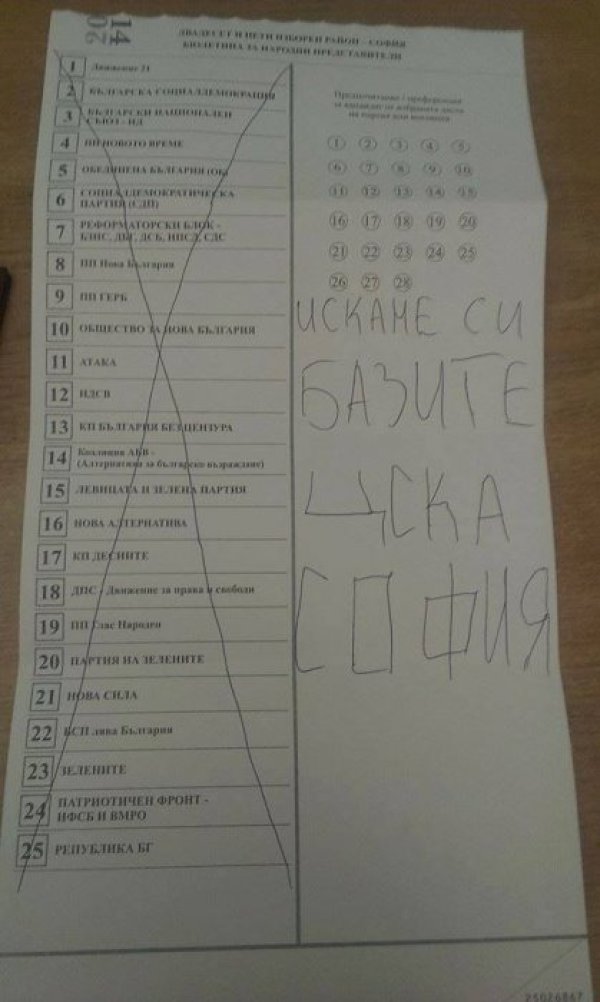 14
06
ДВАДЕСЕТ И ПЕТИ ИЗБОРЕН РАЙОН - СОФИЯ
БЮЛЕТИНА ЗА НАРОДНИ ПРЕДСТАВИТЕЛИ
1 Движение 21
2 БЪЛГАРСКА СОЦИАЛДЕМОКРАЦИЯ
3 БЪЛГАРСКИ НАЦИОНАЛЕН
СЪЮЗ - НД
4 ПП НОВОТО ВРЕМЕ
5 ОБЕДИНЕНА БЪЛГАРИЯ (ОБ)
6 СОЦИАЛДЕМОКРАТИЧЕСКА
ПАРТИЯ (СДП)
7 РЕФОРМАТОРСКИ БЛОК -
БЗНС, ДБГ, ДСБ, НПСД, СДС
8 ПП Нова България
9 ПП ГЕРБ
10 ОБЩЕСТВО ЗА НОВА БЪЛГАРИЯ
11 АТАКА
12 НДСВ
13 КП БЪЛГАРИЯ БЕЗ ЦЕНЗУРА
14 Коалиция АБВ -
(Алтернатива за българско възраждане)
15 ЛЕВИЦАТА И ЗЕЛЕНА ПАРТИЯ
16 НОВА АЛТЕРНАТИВА
17 КП ДЕСНИТЕ
18 ДПС - Движение за права и свободи
19 ПП Глас Народен
20 ПАРТИЯ НА ЗЕЛЕНИТЕ
21 НОВА СИЛА
22 БСП лява България
23 ЗЕЛЕНИТЕ
24 ПАТРИОТИЧЕН ФРОНТ -
НФСБ И ВМРО
25 РЕПУБЛИКА БГ
Предпочитание / преференция
за кандидат от избраната листа
на партия или коалиция
1 2 3 4 5
6 7 8 9 10
11 12 13 14 15
16 17 18 19 20
21 22 23 24 25
26 27 28
ИСКАМЕ СИ
БАЗИТЕ
ЦСКА
СОФИЯ
25026867